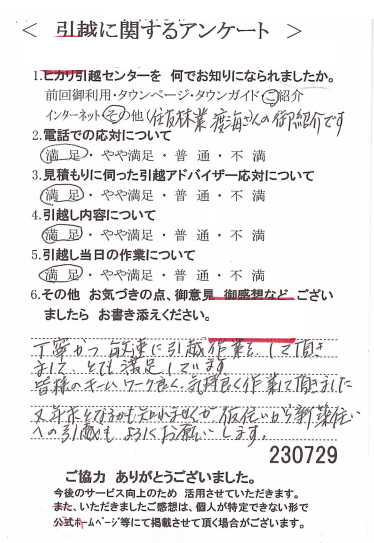 ＜ 引越に関するアンケート ＞
1.ヒカリ引越センターを 何でお知りになられましたか。
前回御利用・タウンページ・タウンガイド・ご紹介
インターネット その他(住友林業 渡海さんの御紹介です
2.電話での応対について
満 足 ・ やや満足 ・ 普 通 ・ 不 満
3.見積もりに伺った引越アドバイザー応対について
満 足 ・ やや満足 ・ 普 通 ・ 不 満
4.引越し内容について
満 足 ・ やや満足 ・ 普 通 ・ 不 満
5.引越し当日の作業について
満 足 ・ やや満足 ・ 普 通 ・ 不 満
6.その他 お気づきの点、御意見 御感想など ござい
ましたら お書き添えください。
丁寧かつ 敏速に引越作業をして頂き
まして、とても満足しています
皆様のチームワーク良く、気持良く作業して頂きました
又年末となるかも知れませんが 仮住いから新築住い
への引越も よろしくお願いします。
230729
ご協力 ありがとうございました。
今後のサービス向上のため 活用させていただきます。
また、いただきましたご感想は、個人が特定できない形で
公式ホームページ等にて掲載させて頂く場合がございます。